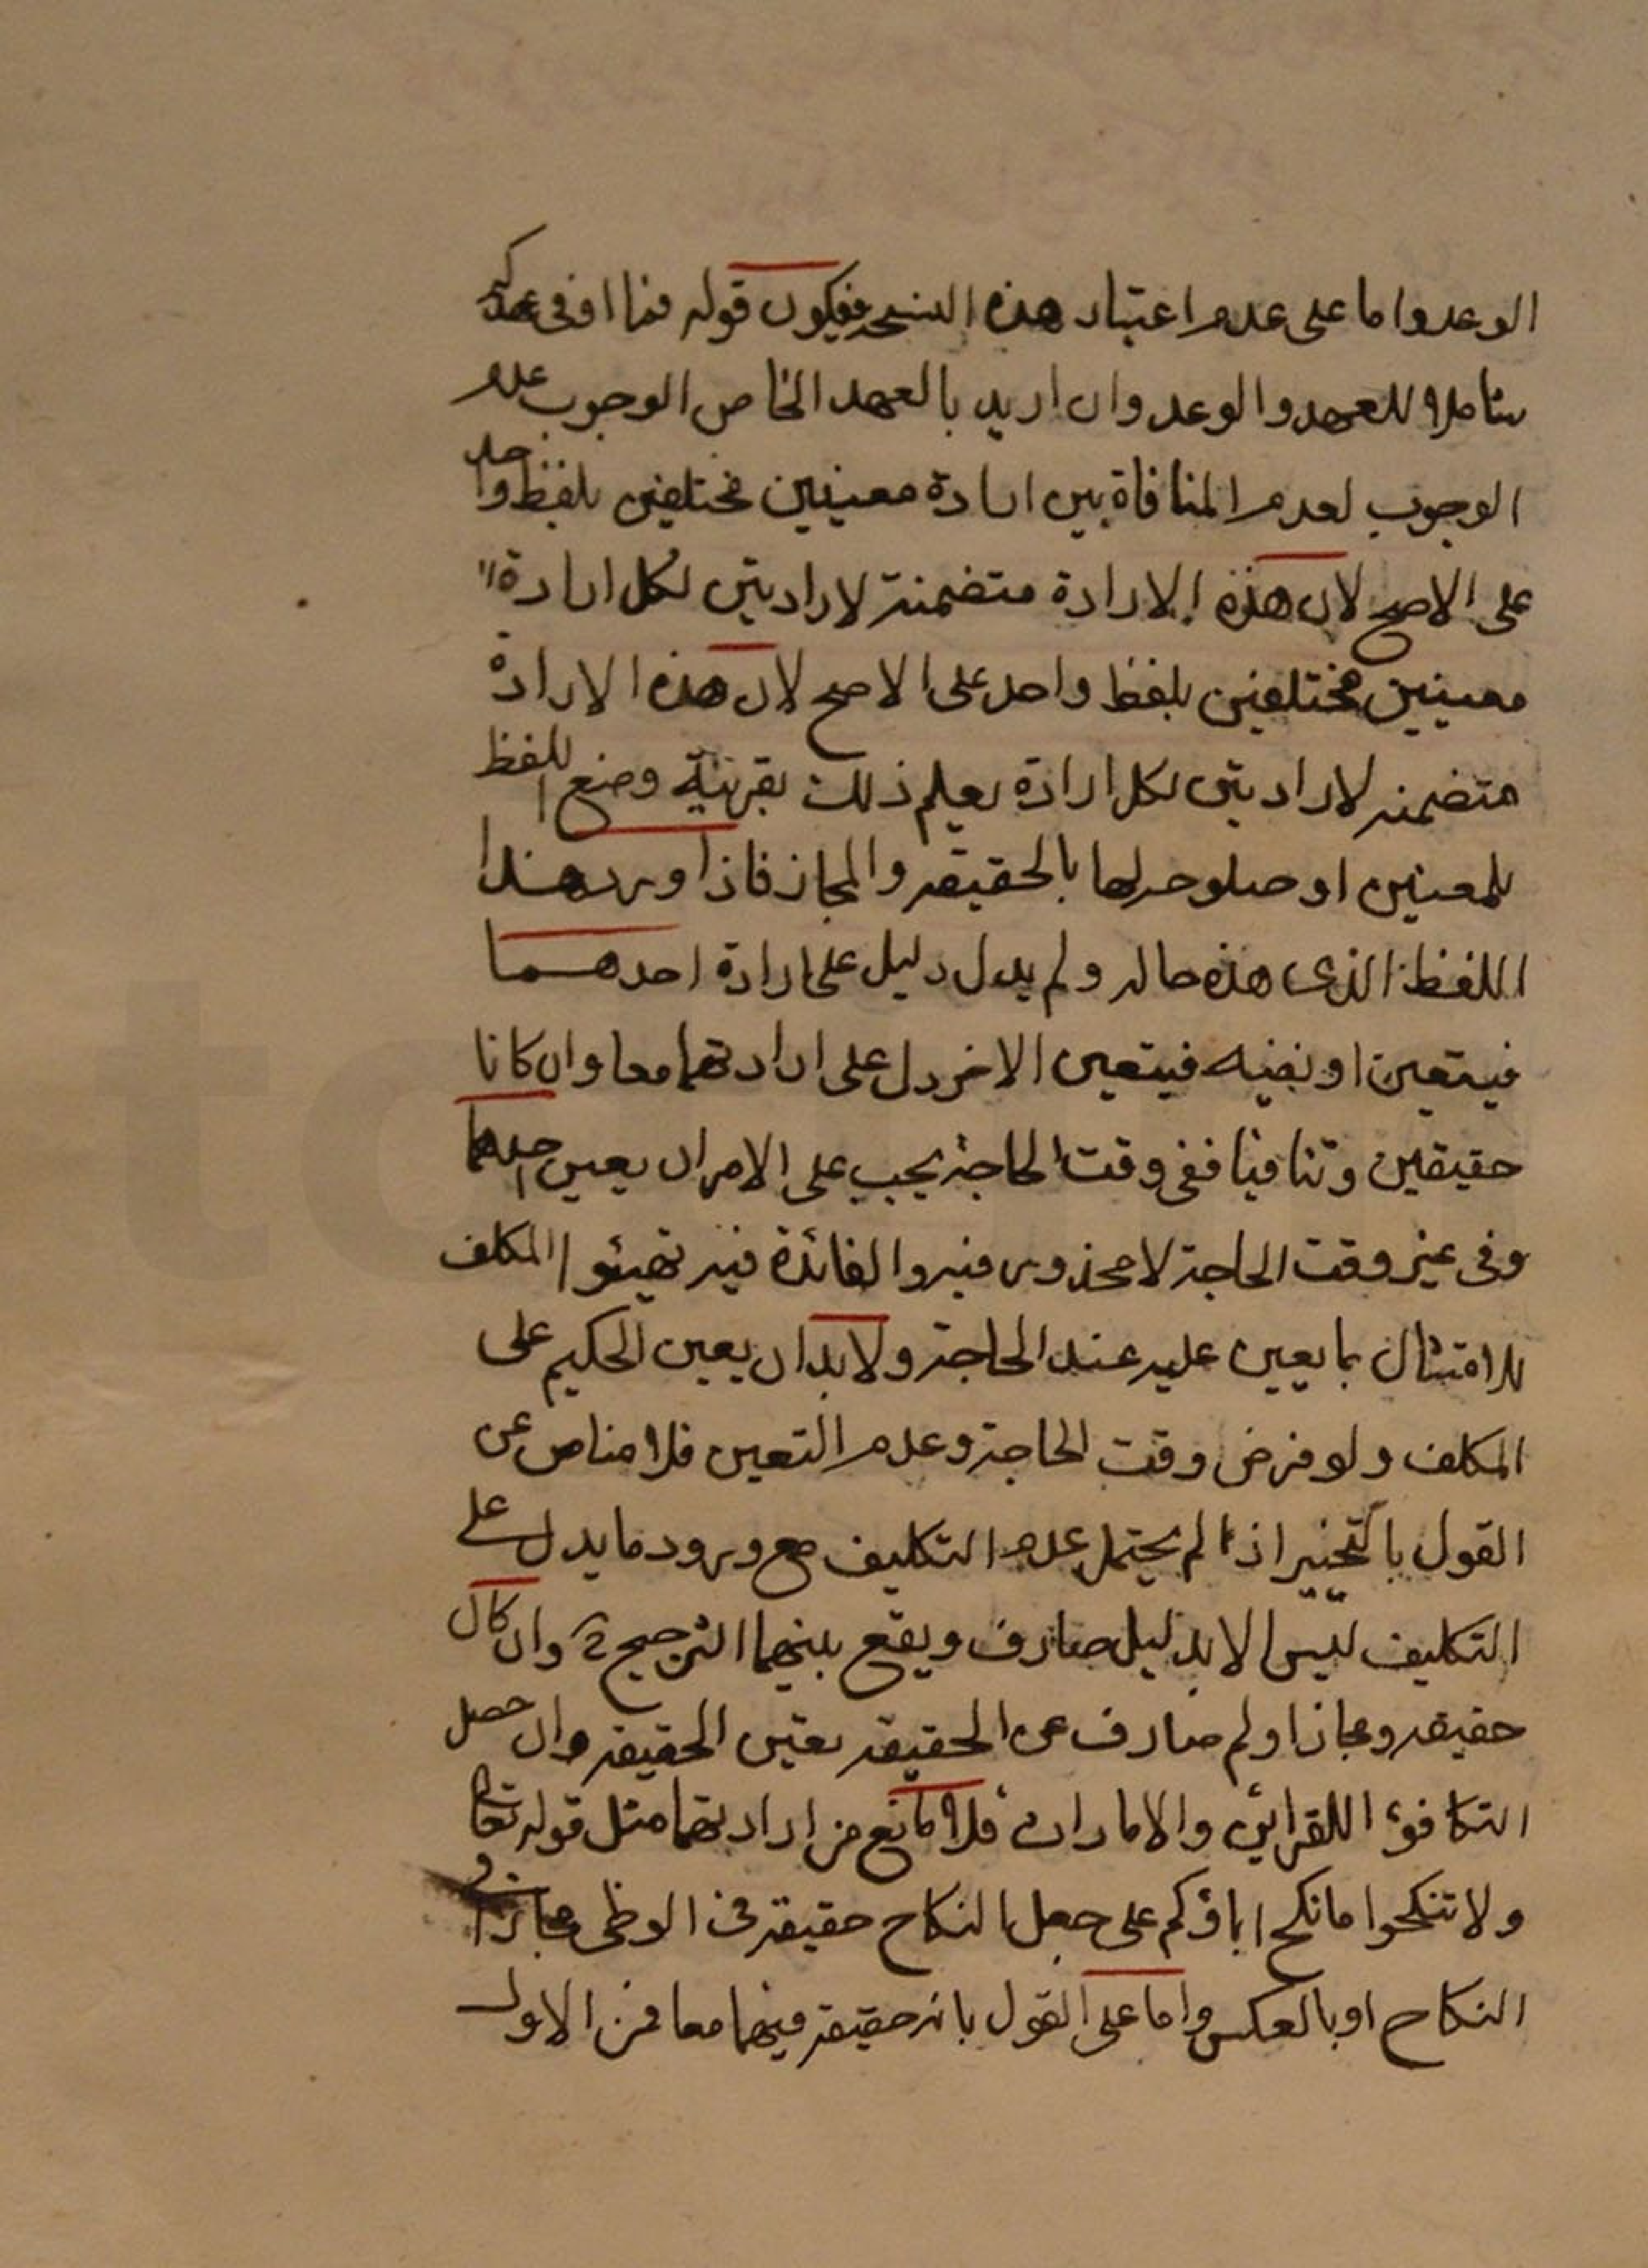 الوعد واما على عدم اعتبار هذه النسخه فيكون قوله فما اوفى
شاملا للعهد والوعد وان اريد بالعهد الخاص الوجوب عدم
الوجوب لعدم المنافاة بين ارادة معنيين مختلفين بلفظ واحد
على الاصح لان هذه الارادة متضمنة لارادتين لكل ارادة
معنيين مختلفين بلفظ واحد على الاصح لان هذه الارادة
متضمنه لارادتين لكل ارادة يعلم ذلك بقرينة وضع اللفظ
للمعنين او صلوحه لهما بالحقيقه والمجاز فاذا ورد هذا
اللفظ الذى هذه حاله ولم يدل دليل على ارادة احدهما
فيتعين او نفيه فيتعين الاخر دل على ارادتهما معا وان كانا
حقيقين وتنافيا ففى وقت الحاجة يجب على الامر ان يعين احدهما
وفى غير وقت الحاجة لا محذور فيه والفائدة فيه تهيئوا المكلف
للامتثال بما يعين عليه عند الحاجة ولا بد ان يعين الحكيم على
المكلف ولو فرض وقت الحاجة وعدم التعين فلا مناص عن
القول بالتخيير اذا لم يحتمل عدم التكليف مع ورود ما يدل على
التكليف ليس الا بدليل صارف ويقع بينهما الترجيح وان كان
حقيقه ومجازا ولم صارف عن الحقيقه تعين الحقيقه وان حصل
التكافؤ اللقرائن والامارات فلا مانع من ارادتهما مثل قوله تعالى
ولا تنكحوا ما نكح اباؤكم على جعل النكاح حقيقة فى الوطى مجازا فى
النكاح او بالعكس واما على القول بانه حقيقة فيهما معا فمن الاول